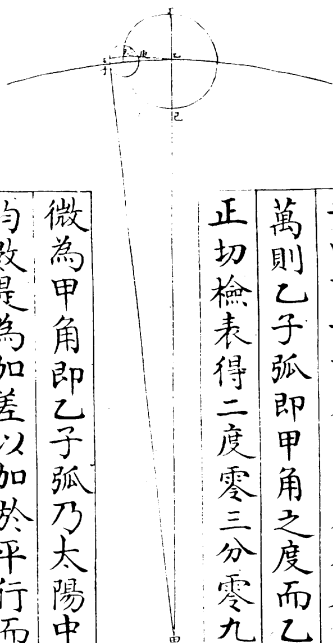 萬則乙子弧即甲角之度而乙
正切檢表得二度零三分零九
微為甲角即乙子弧乃太陽中
均數是為加差以加於平行而
乙
己
子
甲